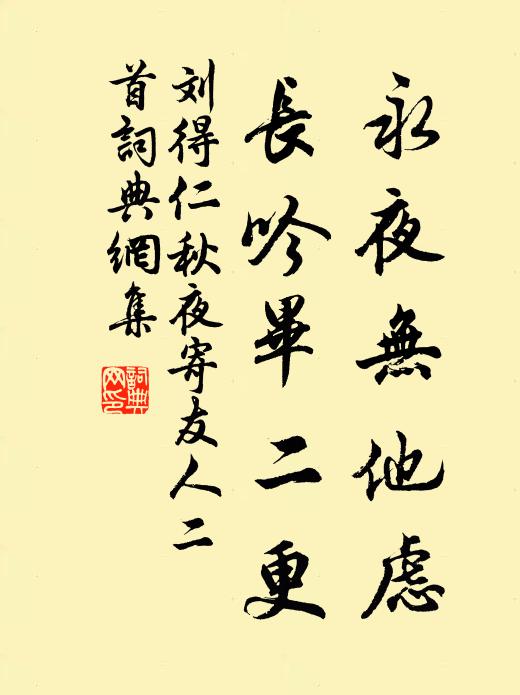 永夜無他慮
長吟畢二更
刘得仁秋夜寄友人二
首詞典網集
詞典
网印